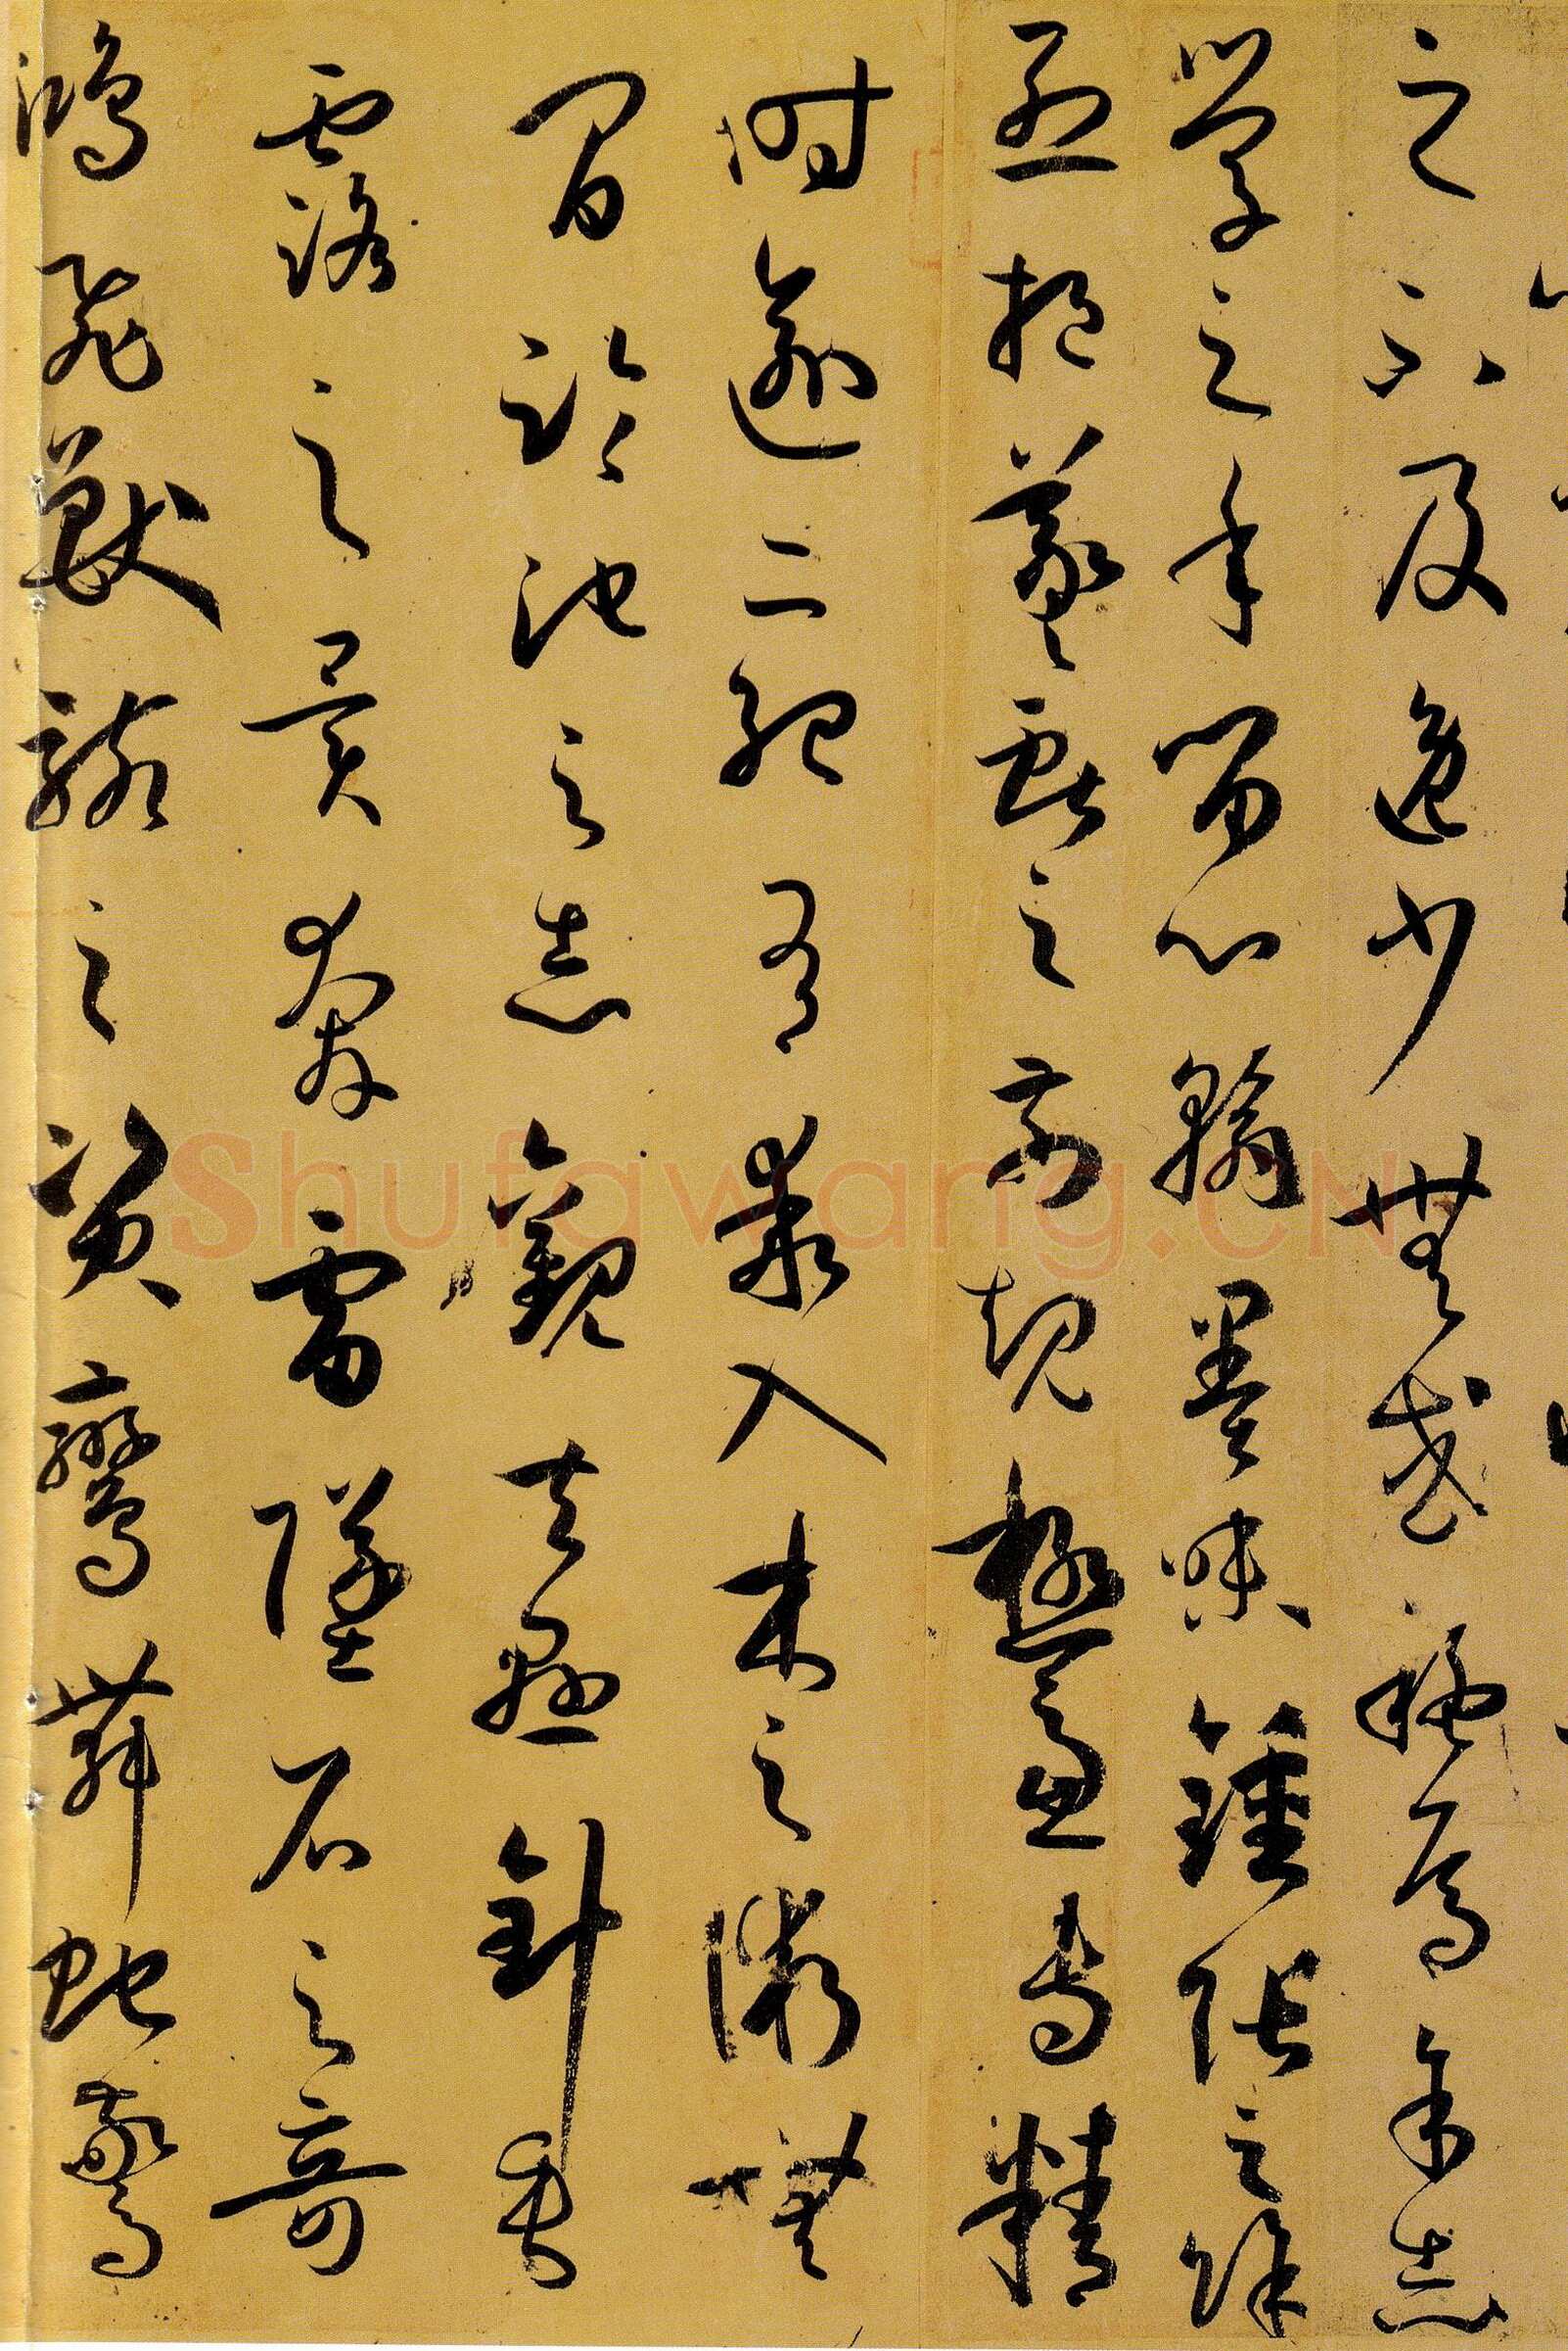 之不及逸少無或疑焉余志
學之年留心翰墨味鍾張之餘
烈挹羲獻之前規極慮專精
時逾二紀有乖入木之術無
間臨池之志觀夫懸針垂
露之異奔雷墜石之奇
鴻飛獸駭之資鸞舞蛇驚
Shufawang.CN